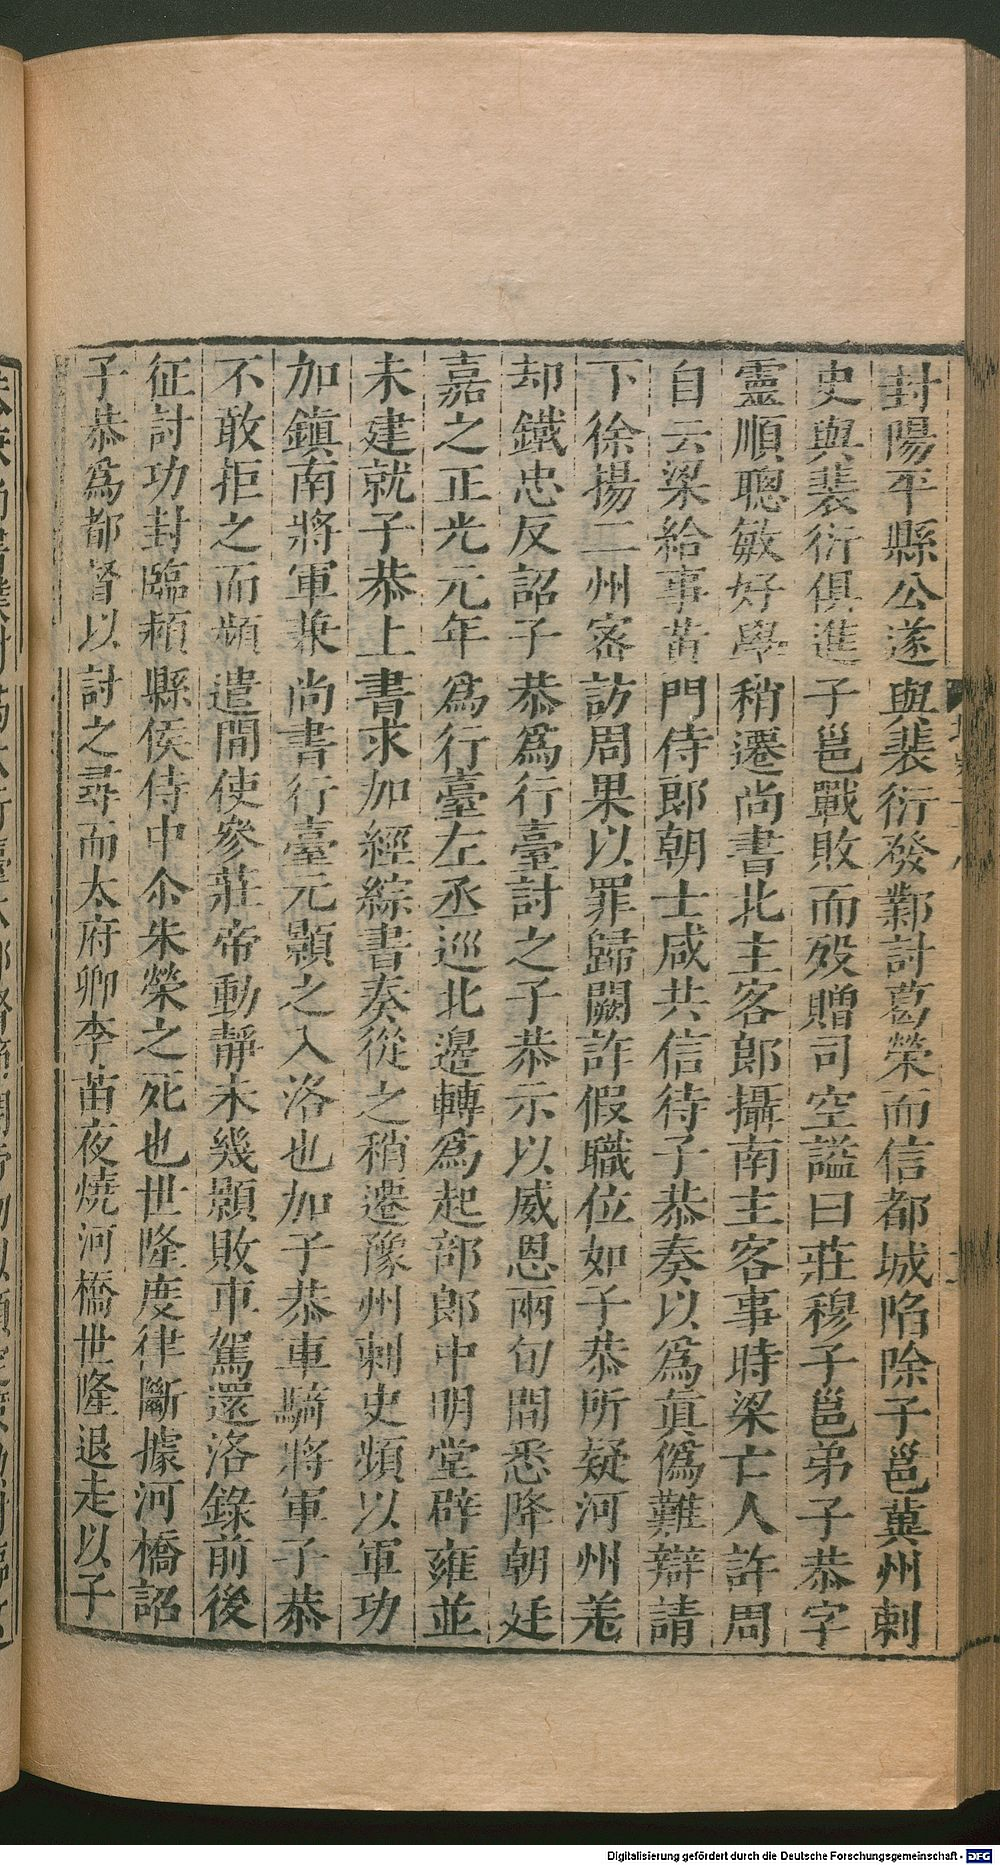 封陽平縣公遂與裴衍發鄴討葛榮而信都城陷除子邕冀州刺
史與裴衍俱進子邕戰敗而歿贈司空謚曰莊穆子邕弟子恭字
靈順聰敏好學稍遷尚書北主客郎攝南主客事時梁亡人許周
自云梁給事黃門侍郎朝士咸共信待子恭奏以為眞僞難辯請
下徐揚二州密訪周果以罪歸闕詐假職位如子恭所疑河州羌
却鐵忠反詔子恭為行臺討之子恭示以威恩兩旬間悉降朝廷
嘉之正光元年為行臺左丞巡北邊轉為起部郎中明堂辟雍並
未建就子恭上書求加經綜書奏從之稍遷豫州刺史頻以軍功
加鎮南將軍兼尚書行臺元顥之入洛也加子恭車騎將軍子恭
不敢拒之而頻遣間使參莊帝動靜未幾顥敗車駕還洛錄前後
征討功封臨潁縣侯侍中尒朱榮之死也世隆度律斷據河橋詔
子恭為都督以討之尋而太府卿李苗夜燒河橋世隆退走以子
Digitalisierung gefördert durch die Deutsche Forschungsgemeinschaft - DFG